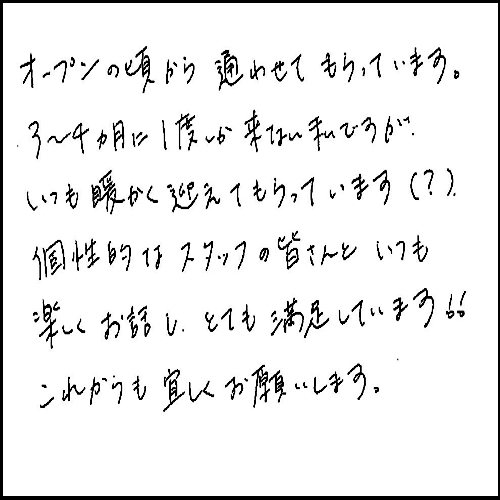 オープンの頃から通わせてもらっています。
3〜4ヵ月に1度しか来ない私ですが、
いつも暖かく迎えてもらっています(?)。
個性的なスタッフの皆さんといつも
楽しくお話し、とても満足しています!!
これからも宜しくお願いします。